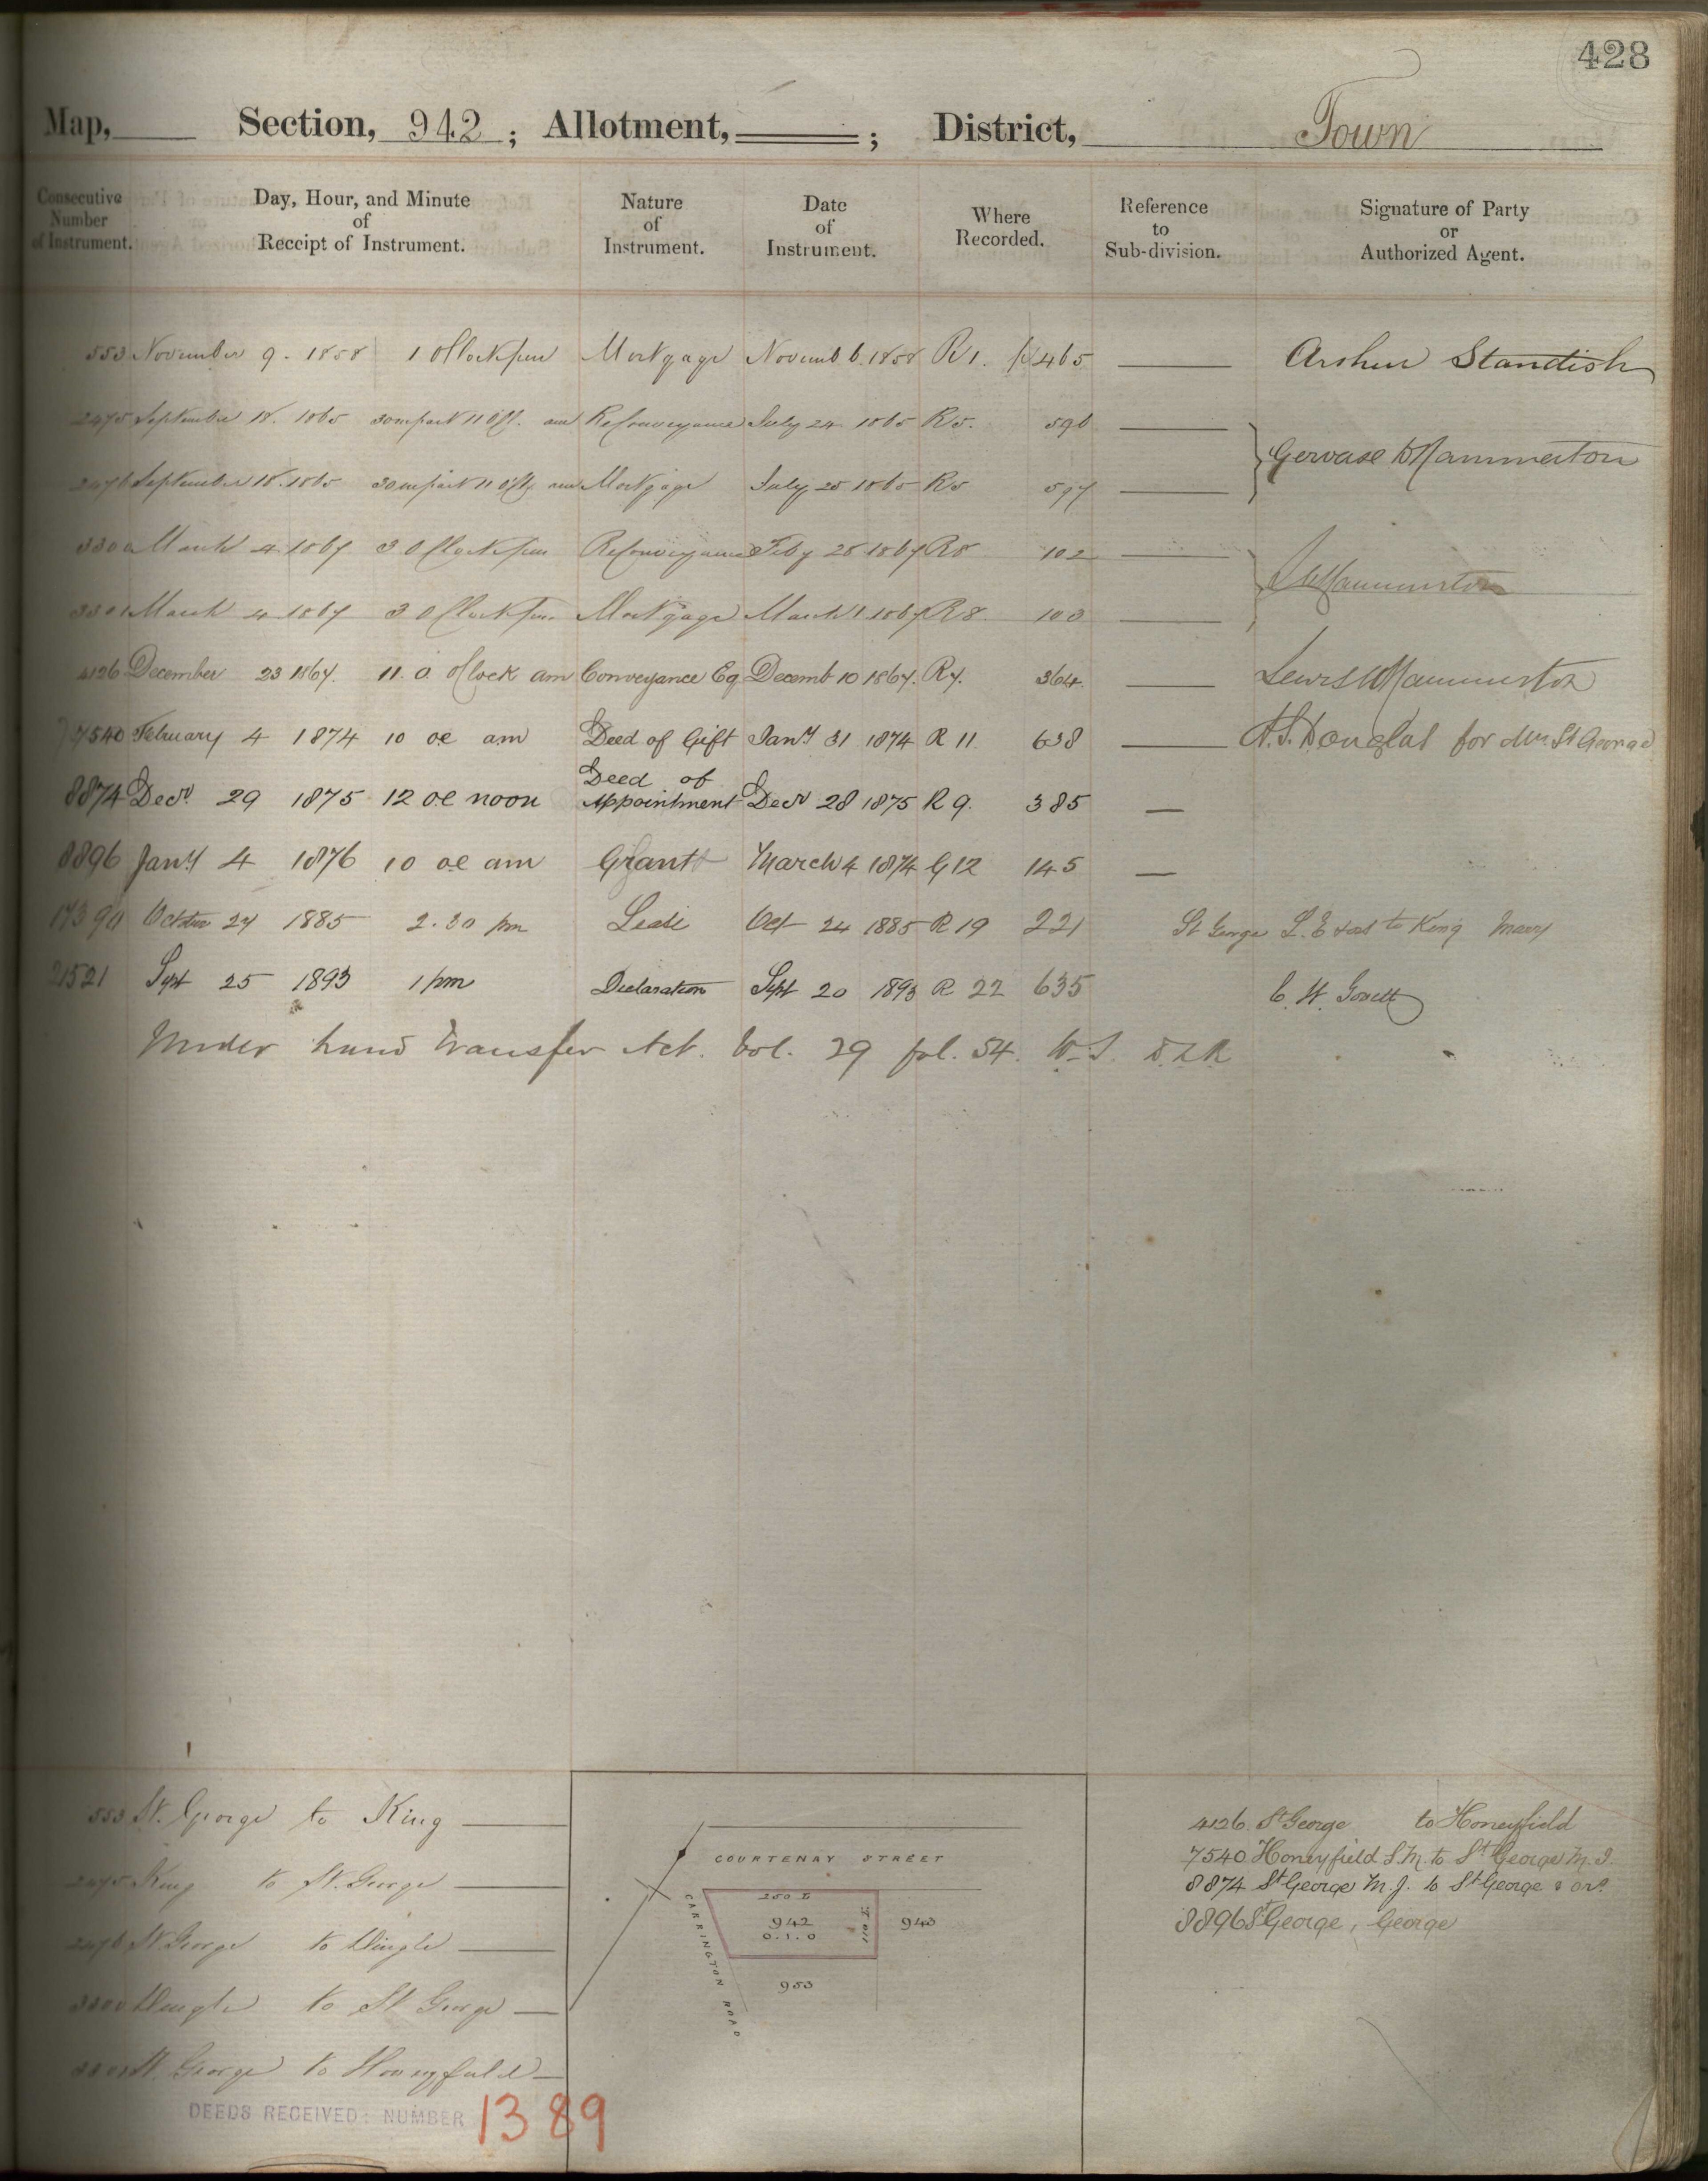 428
Map, Section, 942; Allotment, ; District, Town
Consecutive Number of Instrument.
Day, Hour, and Minute of Receipt of Instrument.
Nature of Instrument.
Date of Instrument.
Where Recorded.
Reference to Sub-division.
Signature of Party or Authorized Agent.
553 November 9. 1858 1 OClock pm Mortgage Novemb 6. 1858 R 1. 465 Arthur Standish
2475 September 18. 1865 30 m past 11 OCl. am Reconveyance July 24 1865 R 5. 596
Gervase D Hammerton
2476 September 18. 1865 30 m past 11 am Mortgage July 25 1865 R 5 597
3300 March 4 1867 3 OClock pm Reconveyance Feby 28 1867 R 8 102
Hammerton
3301 March 4 1867 3 OClock pm Mortgage March 1 1867 R 8. 103
4126 December 23 1867. 11. O Clock am Conveyance Eq Decemb 10 1867. R 7. 364 Lewis Hammerton
7540 February 4 1874 10 oc am Deed of Gift Jany 31 1874 R 11. 638 A.S. Douglas for Mrs St George
8874 Decr. 29 1875 12 oc noon Deed of Appointment Decr 28 1875 R 9. 385
8896 Jany 4 1876 10 oc am Grant March 4 1874 G 12 145
17390 October 27 1885 2.30 pm Lease Oct 24 1885 R 19 221 St George L. E to King Mary
21521 Sept 25 1893 1 pm Declaration Sept 20 1893 R 22 635 C. W. Govett
Under Land Transfer Act. Vol. 29 fol. 54. D.L.R
553 St. George to King
2475 King to St. George
2476 St George to Dingle
3300 Dingle to St George
3301 St. George to Honeyfield
DEEDS RECEIVED: NUMBER 1389
COURTENAY STREET
CARRINGTON ROAD
250 L
942
0.1.0
943
953
4126. St George to Honeyfield
7540 Honeyfield S.M. to St George M.J.
8874 St George M.J. to St George & anr.
8896 St George, George